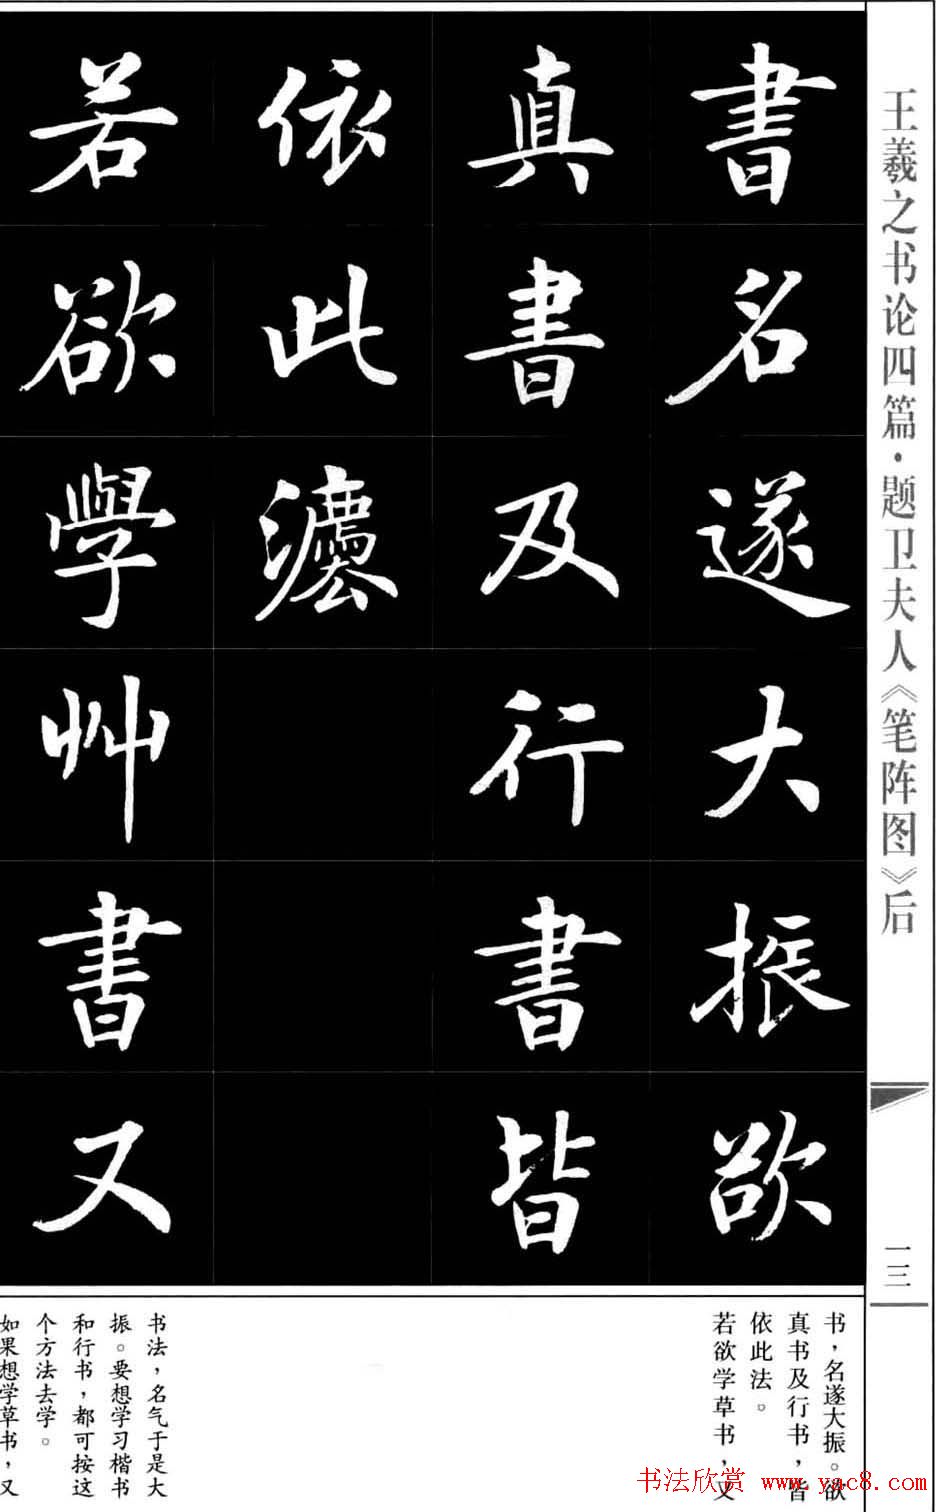 王羲之书论四篇·题卫夫人《笔阵图》后
一三
書名遂大振欲
真書及行書皆
依此灋
若欲學艸書又
书，名遂大振。欲
真书及行书，皆
依此法。
若欲学草书，又
书法，名气于是大
振。要想学习楷书
和行书，都可按这
个方法去学。
如果想学草书，又
书法欣赏 www.yac8.com